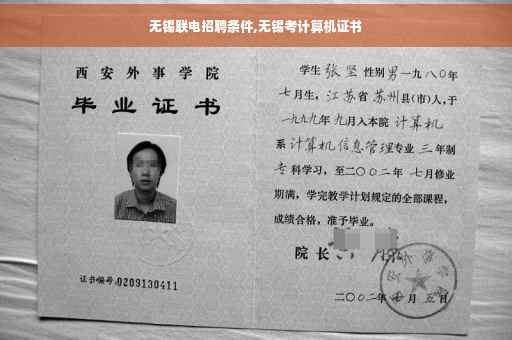 无锡联电招聘条件,无锡考计算机证书
西安外事学院
毕业证书
证书编号:0209130411
学生 张坚 性别 男 一九八〇年
七月生, 江苏省 苏州 县(市)人,于
一九九九年 九月入本院 计算机
系 计算机信息管理 专业 三 年制
专科学习,至二〇〇二年 七月修业
期满,学完教学计划规定的全部课程,
成绩合格,准予毕业。
院长
二〇〇二年 七月 五日